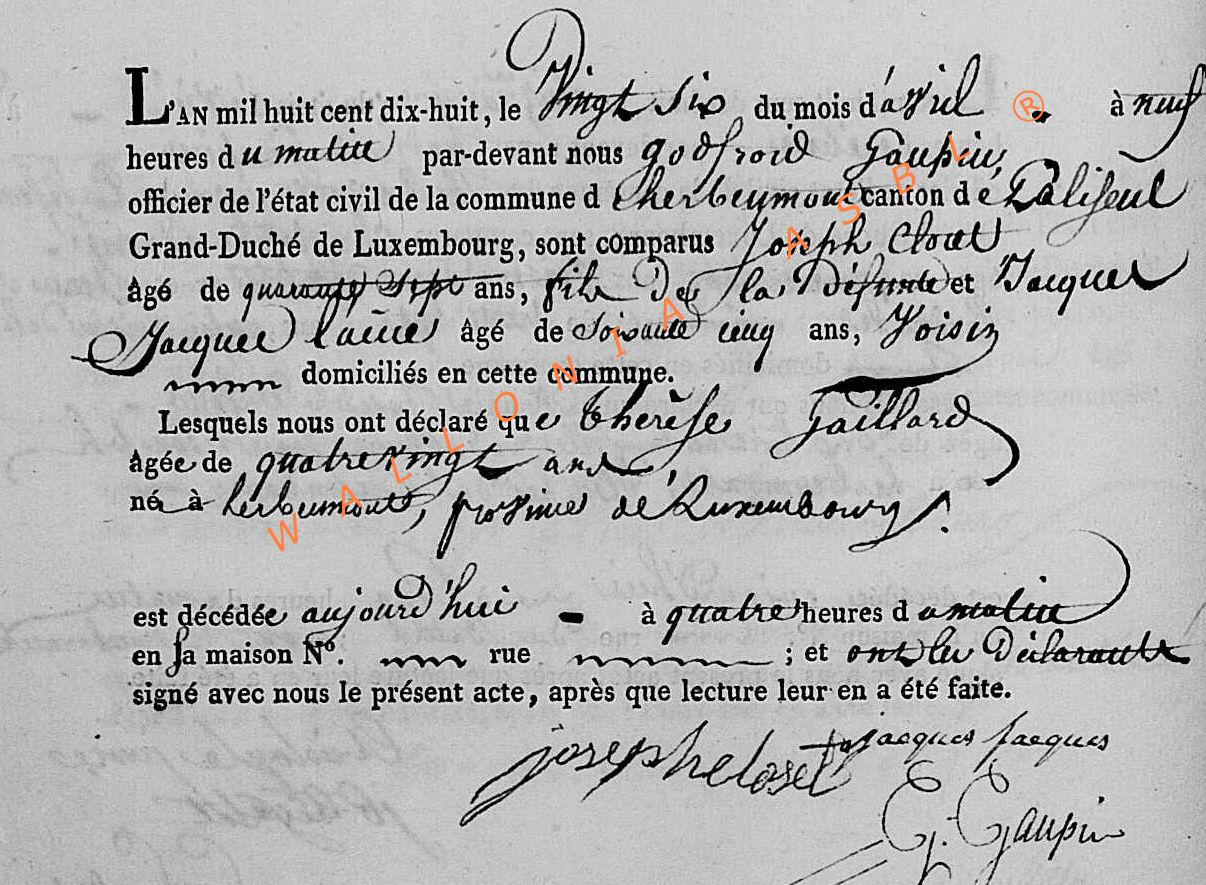 L'AN mil huit cent dix-huit, le Vingt six du mois d'avril à neuf
heures du matin par-devant nous godfroid Gaupin,
officier de l'état civil de la commune d'herbeumont canton de Paliseul
Grand-Duché de Luxembourg, sont comparus Joseph Closet
âgé de quarante sept ans, fils de la défunte et Jacques
Jacques l'ainé âgé de soixante cinq ans, Voisin
domiciliés en cette commune.
Lesquels nous ont déclaré que thérèse Gaillard
âgée de quatre vingt ans
née à herbeumont, province de Luxembourg.
est décédée aujourd'hui à quatre heures du matin
en sa maison N°. rue ; et ont les déclarants
signé avec nous le présent acte, après que lecture leur en a été faite.
joseph closet jacques jacques
G. Gaupin
WALLONIA ASBL ®